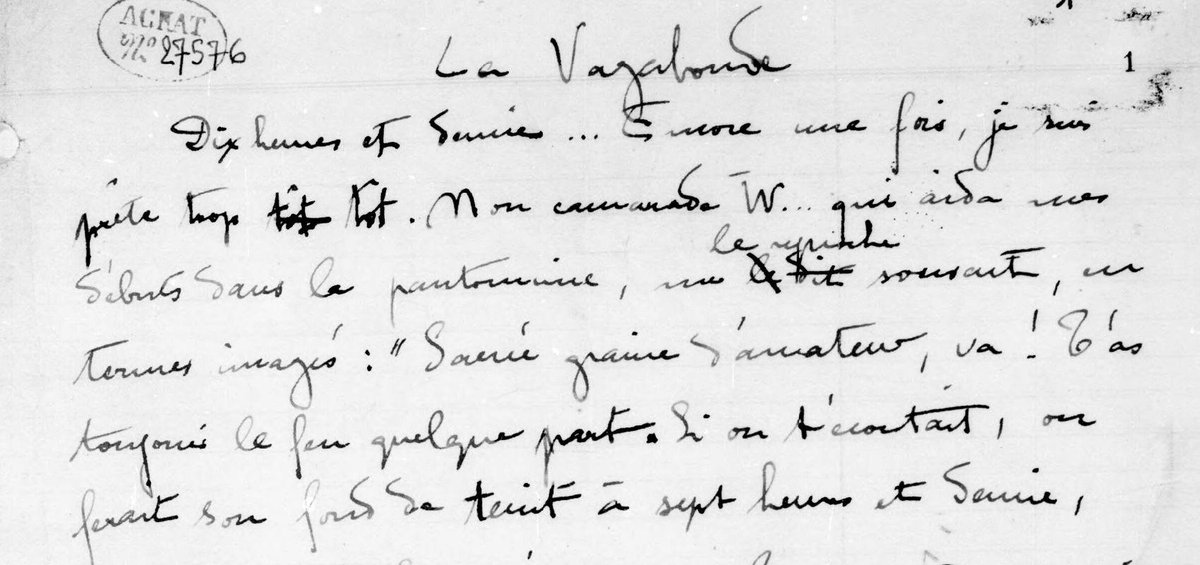 ACHAT
No 27576
La Vagabonde
1
Dix heures et demie ... Encore une fois, je suis
prête trop tôt tôt. Mon camarade W... qui aida mes
le reproche
débuts dans la pantomime, me le dit souvent, en
termes imagés : " Sacrée graine d'amateur, va ! T'as
toujours le feu quelque part. Si on t'écoutait, on
ferait son fond de teint à sept heures et demie,